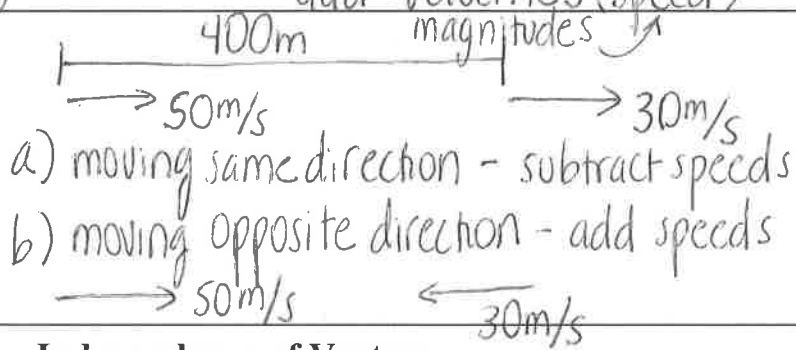 add velocities (speed)
400m magnitudes
50m/s 30m/s
a) moving same direction - subtract speeds
b) moving opposite direction - add speeds
50m/s 30m/s